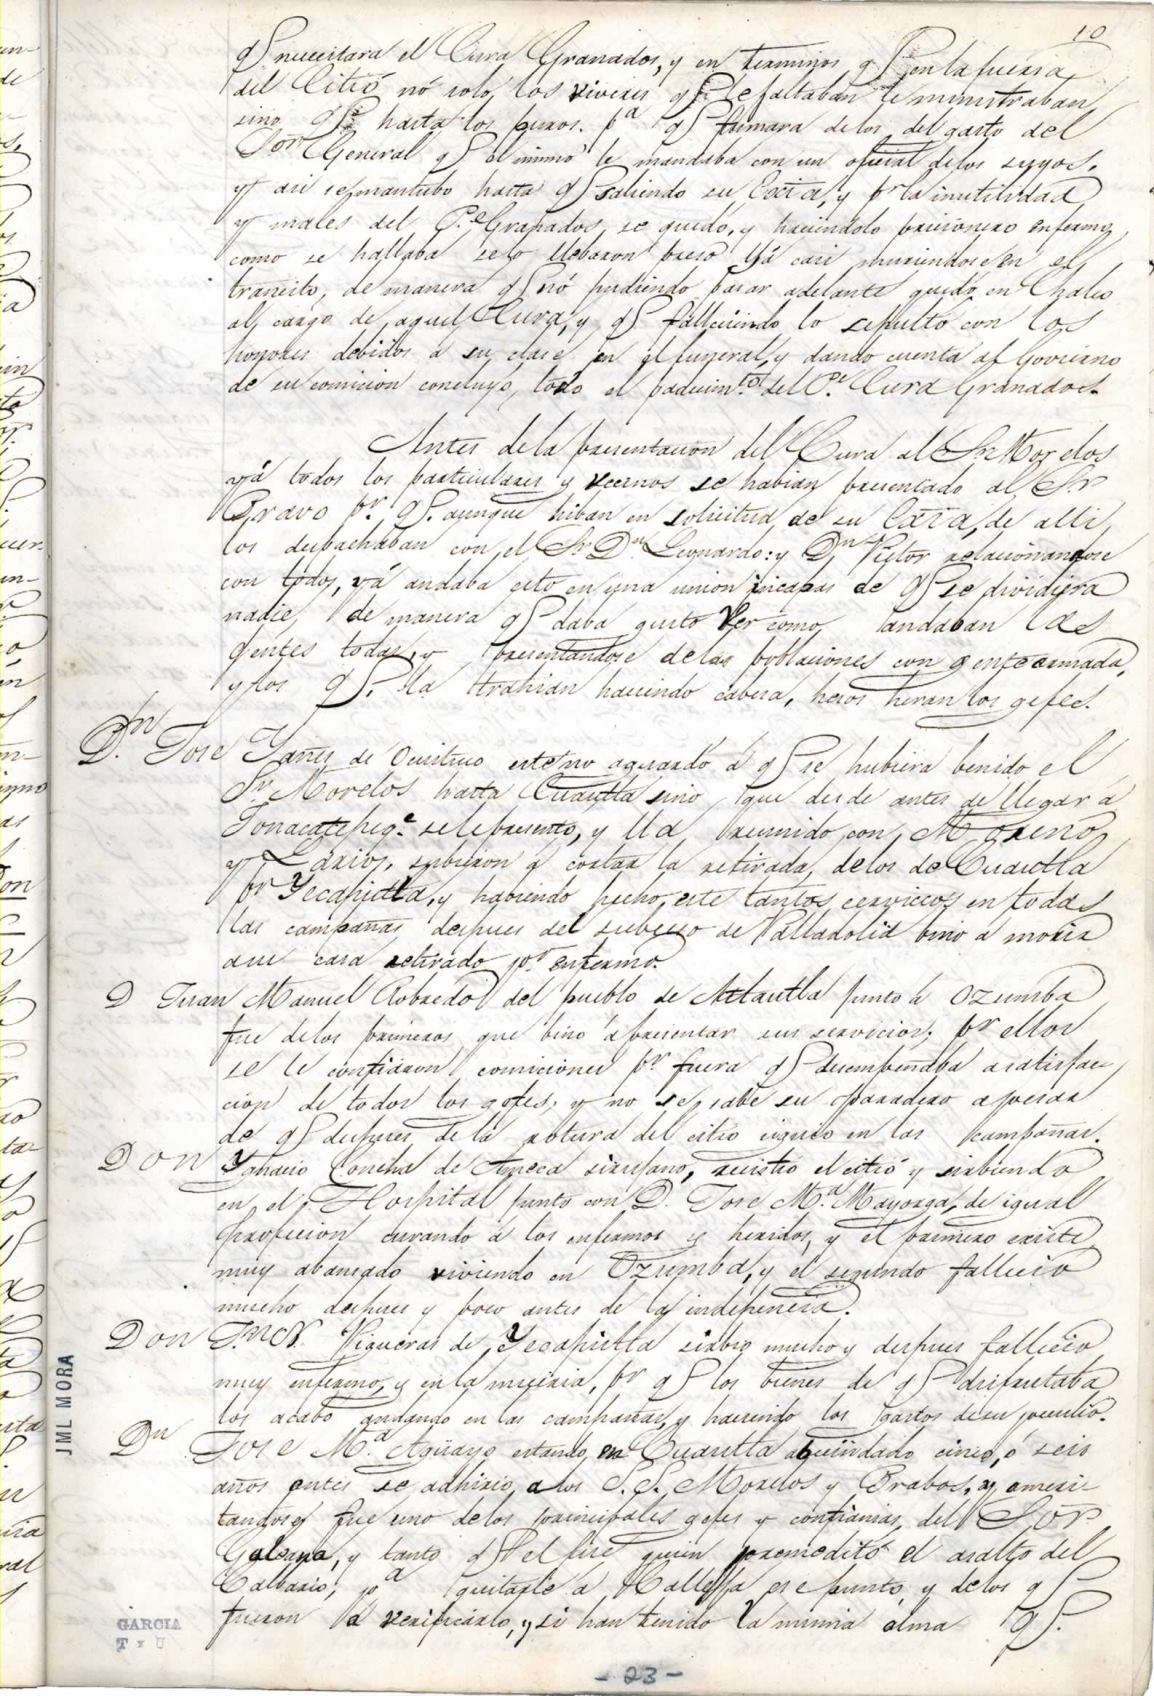 10
qe. necesitara el Cura Granados, y en terminos qe. en la fuersa
del Citió nó solo los viveres qe. le faltaban le ministraban
sino qe. hasta los puros. pa. qe. fumara de los del gasto del
Sor. General qe. el mismo le mandaba con un oficial de los suyos.
y asi se mantubo hasta qe. saliendo su Exia, y pr. la inutilidad
y males del Pe. Granados, se quedó, y haciendolo pricionero enfermo
como se hallaba se lo llebaron preso yá casi muriendose en el
transito, de manera qe. nó pudiendo pasar adelante quedó en Chalco
al cargo de aquel Cura, y qe. falleciendo lo sepultó con los
honores debidos a su clase en el funeral, y dando cuenta al Govierno
de su comicion concluyó, todo el padecimto. del Pe. Cura Granados.
Antes de la presentacion del Cura al Sr. Morelos
yá todos los particulares y vecinos se habian presentado al Sr.
Bravo pr. qe. aunque hiban en solicitud de su Exia, de alli
los despachaban con el Sr. Dn. Leonardo: y Dn. Victor relacionandose
con todos, yá andaba esto en una union incapas de qe. se dividiera
nadie de manera qe. daba gusto ver como andaban las
gentes todas, y presentandose de las poblaciones con gente armada,
y los qe. la trahian haciendo cabesa, hesos heran los gefes.
Dn. Jose Yañes de Ocuituco este no aguardó á qe. se hubiera benido el
Sr. Morelos hasta Cuautla sino que desde antes de llegar a
Jonacatepeqe. se le presentó, y lla reunido con Moreno
y Larios, subieron á cortar la retirada, de los de Cuautla
pr. Yecapistla, y habiendo hecho, este tantos cervicios en todas
las campañas despues del suceso de Valladolid bino a morir
a su casa retirado pr. enfermo.
D Juan Manuel Robredo del pueblo de Atlautla junto á Ozumba
fue de los primeros que bino á presentar sus servicios; pr. ellos
se le confiaron comiciones pr. fuera qe. desempeñaba a satisfac
cion de todos los gefes, y no se sabe su paradero apesar
de qe. despues de la rotura del citio siguió en las campañas.
Don Ygnacio Concha de Ameca sirujano, recistió el citió y sirbiendo
en el Hospital junto con D. Jose Ma. Mayorga, de igual
profecion curando á los enfermos y heridos, y el primero existe
muy abansado viviendo en Ozumba, y el segundo fallecio
mucho despues y poco antes de la independencia.
Don Viqueras de Yecapistla sirbio mucho y despues fallecio
muy enfermo, y en la miceria, pr. qe. los bienes de qe. disfrutaba
los acabó andando en las campañas, y haciendo los gastos de su peculio.
Dn Jose Ma. Aguayo estando en Cuautla abecindado cinco, ó seis
años antes se adhirio, a los S.S. Morelos y Brabos, y ameri
tandose fue uno de los principales gefes y confiansas, del Sor.
Galeana, y tanto qe. el fue quien premeditó el asalto del
Calbario; pa. quitarle á Calleja ese punto, y de los qe.
fueron á verificarlo, y si han tenido la misma alma qe.
JML MORA
GARCIA
T y U
- 23 -